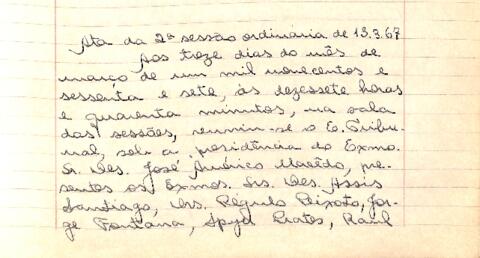 Ata da 2ª sessão ordinária de 13.3.67
Aos treze dias do mês de
março de um mil novecentos e
sessenta e sete, às dezessete horas
e quarenta minutos, na sala
das sessões, reuniu-se o E. Tribu-
nal, sob a presidência do Exmo.
Sr. Des. José Américo Macêdo, pre-
sentes os Exmos. Srs. Des. Assis
Santiago, Drs. Régulo Peixoto, Jor-
ge Fontana, Prates, Raul